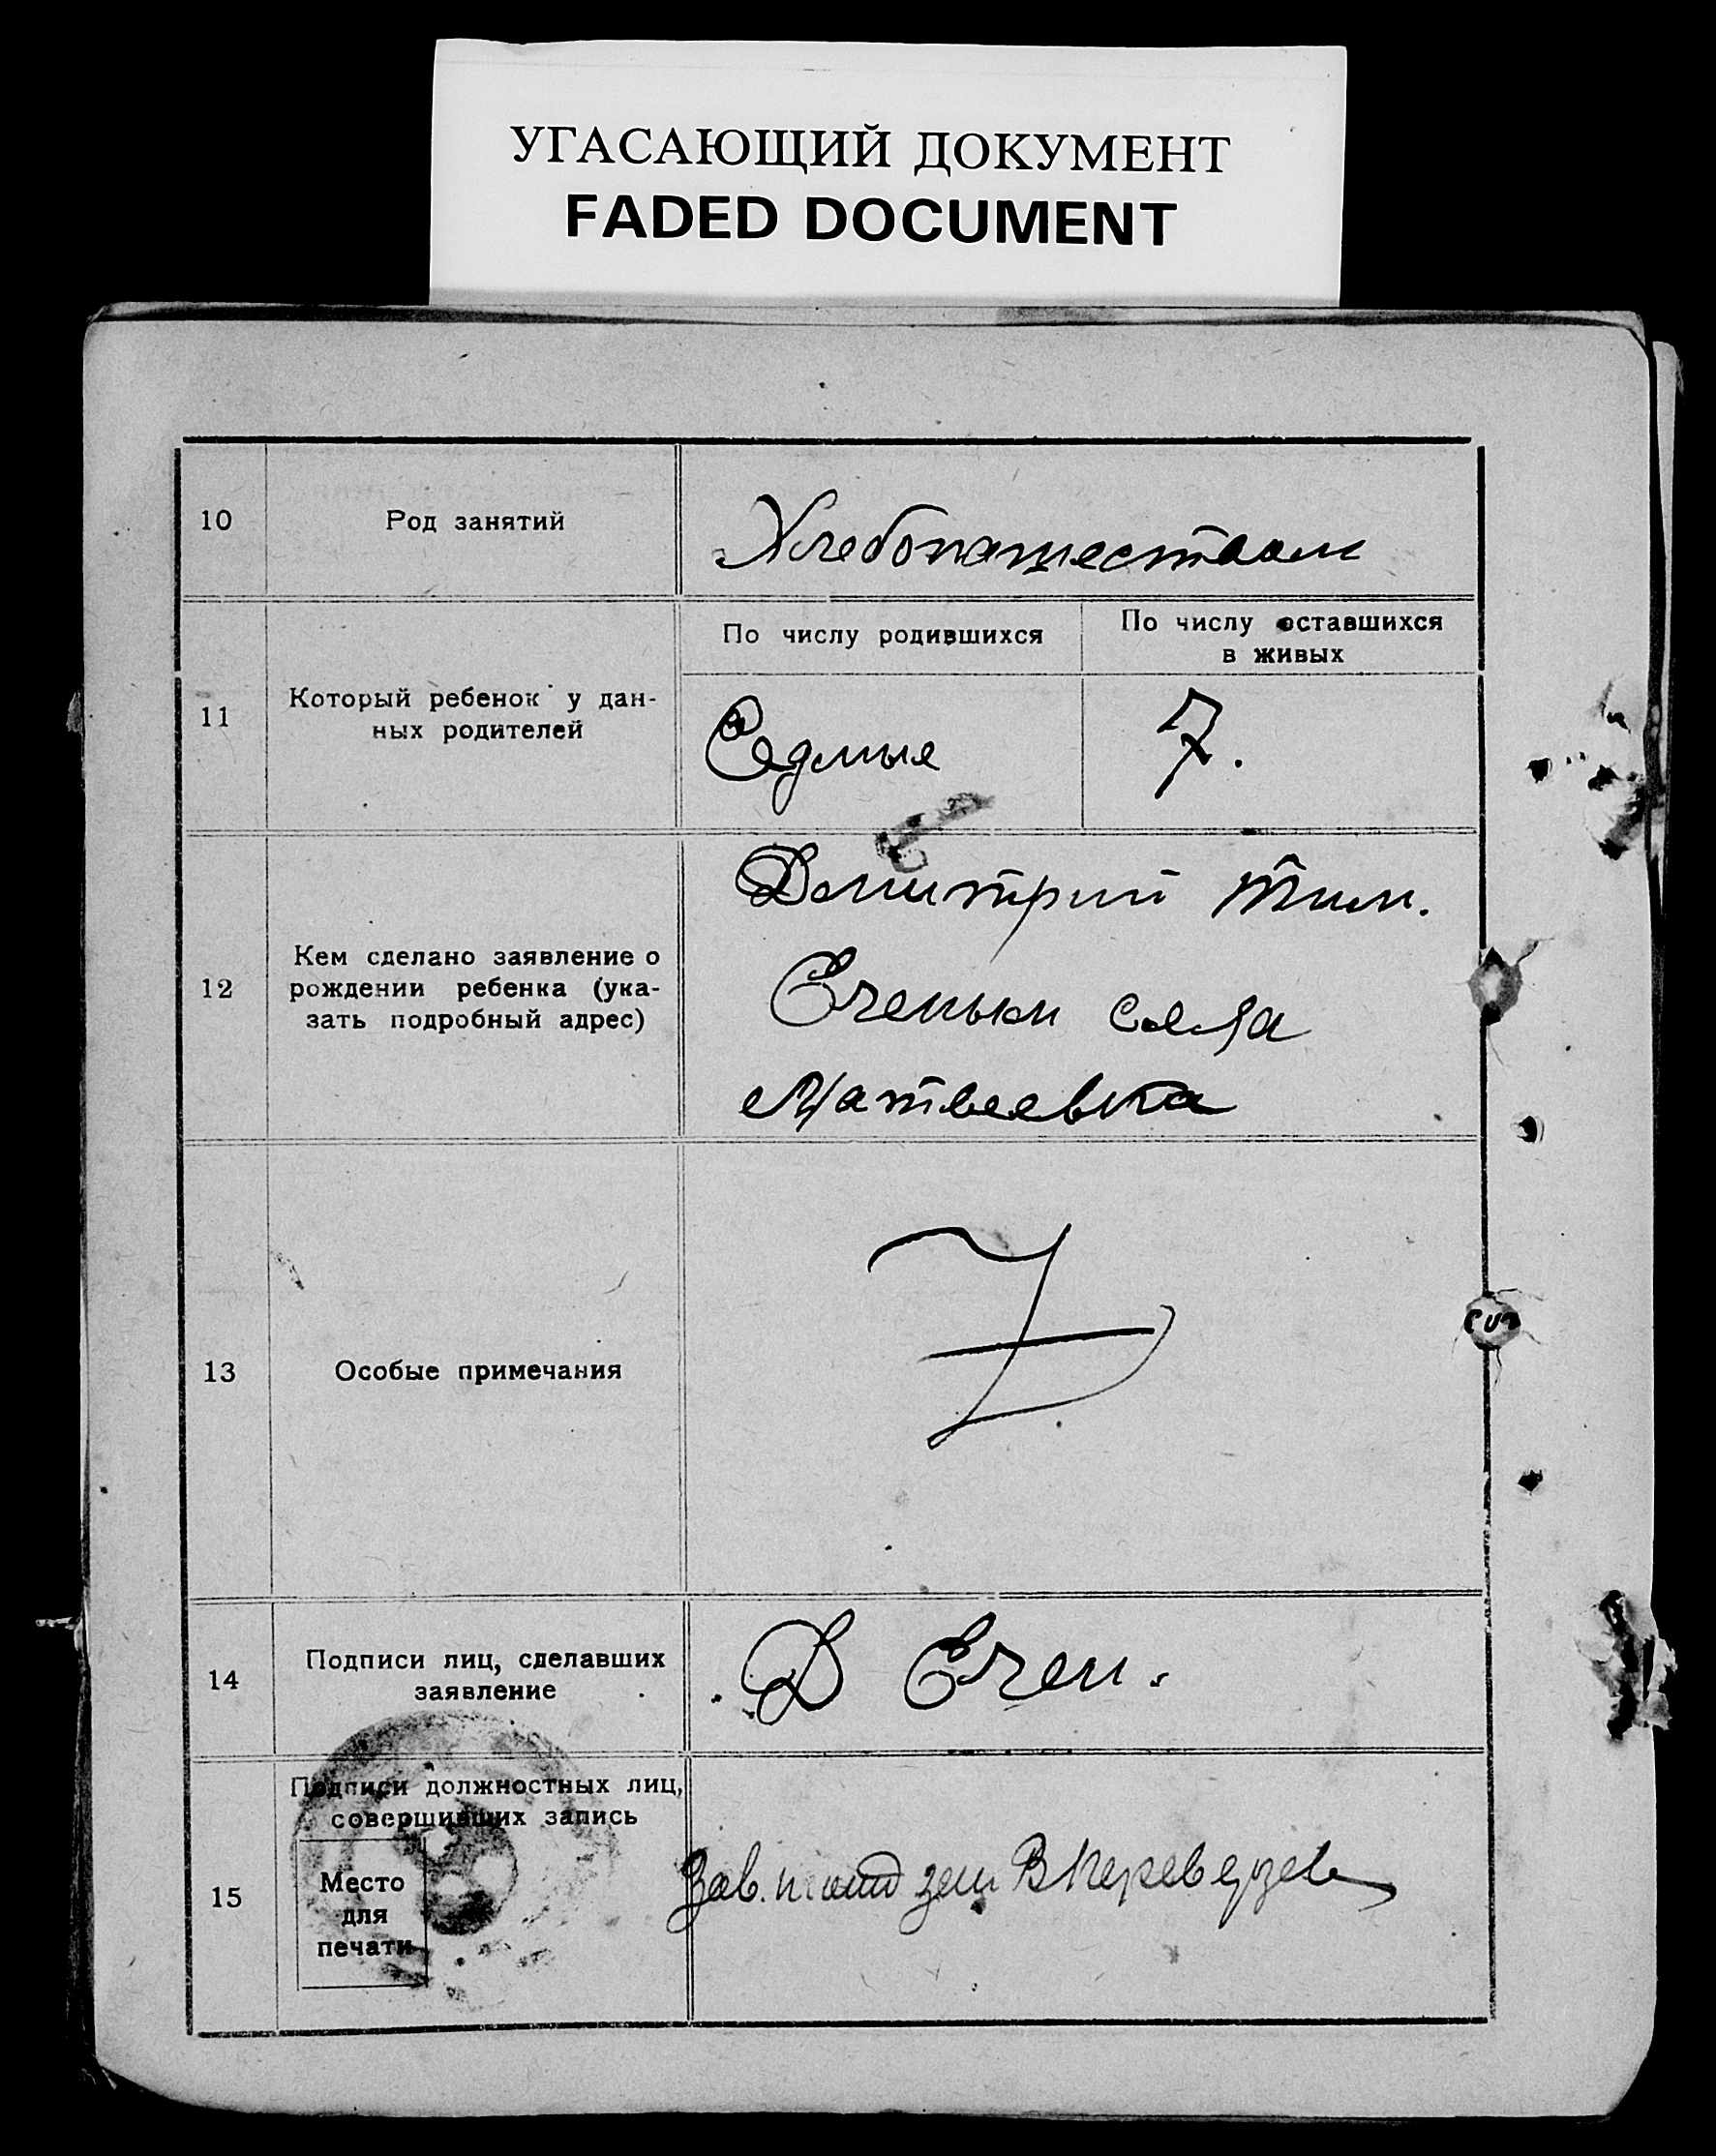 УГАСАЮЩИЙ ДОКУМЕНТ
FADED DOCUMENT
10
Род занятий
Хлебопашеством
11
Который ребенок у дан-
ных родителей
По числу родившихся
По числу оставшихся
в живых
Седмые
7.
12
Кем сделано заявление о
рождении ребенка (ука-
зать подробный адрес)
Демитрий Тим.
села
Матвеевка
13
Особые примечания
14
Подписи лиц, сделавших
заявление
Д
15
Подписи должностных лиц,
совершивших запись
Место
для
печати
Зав. В Переверзев